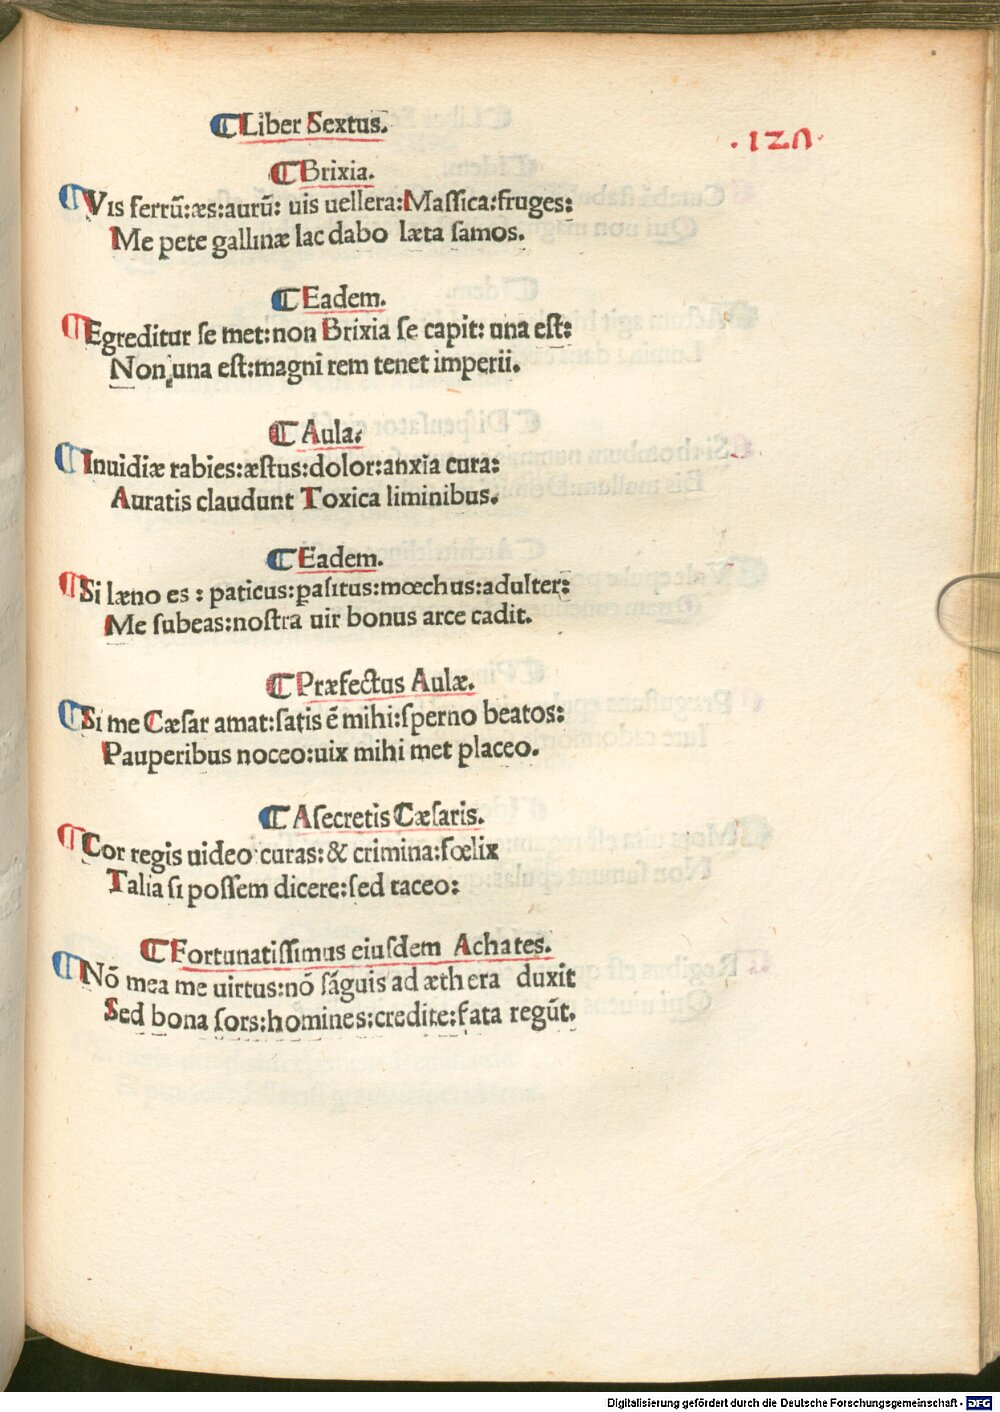 ¶Liber Sextus.
¶Brixia.
¶Vis ferrū:æs:aurū: uis uellera:Massica:fruges:
Me pete gallinæ lac dabo læta samos.
¶Eadem.
¶Egreditur se met:non Brixia se capit: una est:
Non una est:magni rem tenet imperii.
¶Aula:
¶Inuidiæ rabies:æstus:dolor:anxia cura:
Auratis claudunt Toxica liminibus.
¶Eadem.
¶Si læno es: paticus:pasitus:mœchus:adulter:
Me subeas:nostra uir bonus arce cadit.
¶Præfectus Aulæ.
¶Si me Cæsar amat:satis ē mihi:sperno beatos:
Pauperibus noceo:uix mihi met placeo.
¶Asecretis Cæsaris.
¶Cor regis uideo curas:& crimina:fœlix
Talia si possem dicere:sed taceo:
¶Fortunatissimus eiusdem Achates.
¶Nō mea me uirtus:nō sāguis ad æthera duxit
Sed bona sors:homines:credite:fata regūt.
Digitalisierung gefördert durch die Deutsche Forschungsgemeinschaft - DFG